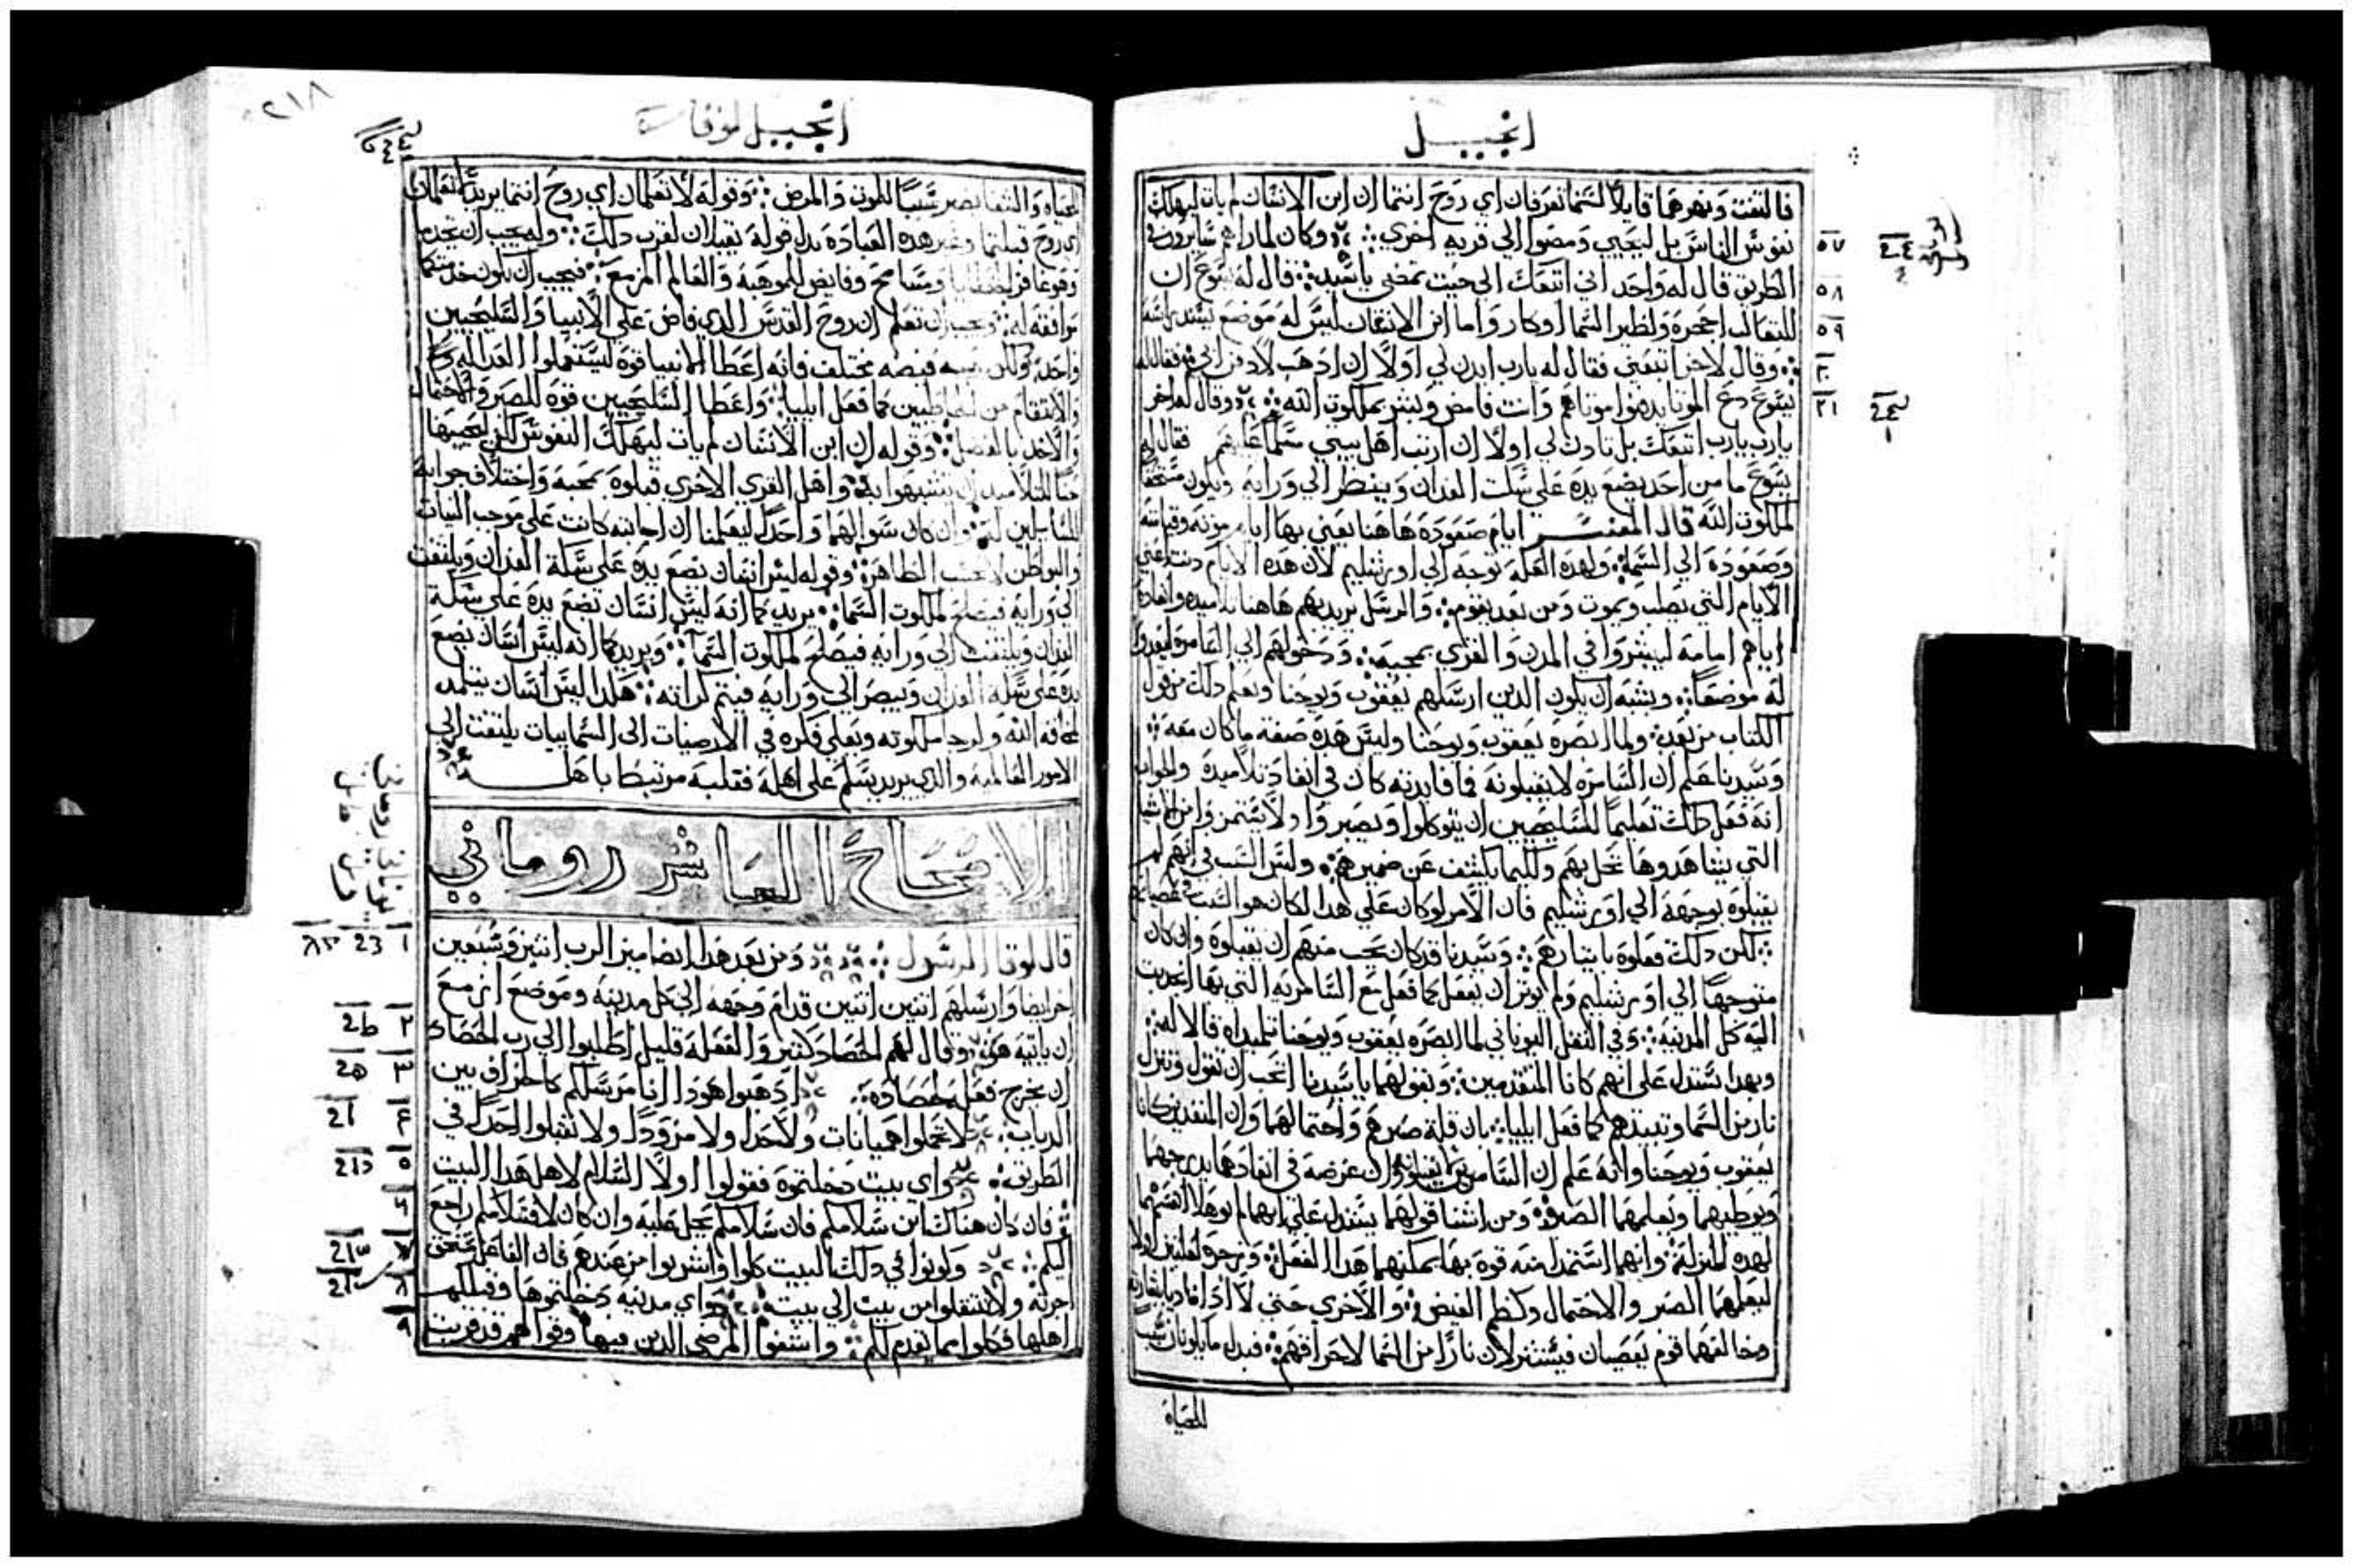 انجيل
فالتفت ونهرهما قايلا لستما تعرفان اي روح انتما ان ابن الانسان لم يات ليهلك
نفوس الناس بل ليحيي ومضوا الي قريه اخري وكان لما راهم سايرون في
الطريق قال له واحد اني اتبعك الي حيث تمضي يا سيد قال له يسوع ان
للتعالب اجحره ولطير السما اوكار واما ابن الانسان ليس له موضع يسند راسه
وقال لاخر اتبعني فقال له يارب ايدن لي اولا ان اذهب لادفن ابي فقال له
يسوع دع الموتا يدفنوا موتاهم وانت فامض وبشر بملكوت الله وقال له اخر
يارب اتبعك بل تادن لي اولا ان ارتب اهل بيتي فقال له
يسوع ما من احد يضع يده علي سكت الفدان وينظر الي ورايه ويكون مستحقا
لملكوت الله قال المفسر ايام صعوده هاهنا يعني بها ايام موته وقيامته
وصعوده الي السما ولهده العله توجه الي اورشليم لان هده الايام
الايام التي يصلب ويموت ومن بعد يقوم والرسل يريد بهم هاهنا تلاميده وانفاده
اياهم امامه ليبشروا في المدن والقري بمجيه ودخولهم الي السامره ليعدوا
له موضعا ويشبه ان يكون الدين ارسلهم يعقوب ويوحنا ويعلم دلك من قول
الكتاب من بعد ولما ابصره يعقوب ويوحنا وليس هده صفة ما كان معه
وسيدنا علم ان السامره لا يقبلونه فما فايدته كان في انفاد تلاميده والجواب
انه فعل دلك تعليما للسليحيين ان يتوكلوا ويصبروا ولا
التي يشاهدوها تحل بهم وكليما يكشف عن ضميرهم وليس السبب في انهم لم
يقبلوه توجهه الي اورشليم فان الامر لو كان علي هدا لكان هو السبب في
لكن دلك فعلوه باتيارهم وسيدنا قد كان يجب منهم ان يقبلوه وان كان
متوجها الي اورشليم ولم يوثر ان يفعل كما فعل مع السامريه التي بها انجدبت
اليه كل المدينه وفي النقل اليوناني لما ابصره يعقوب ويوحنا تلميداه قالا له
وبهدا يستدل علي انهم كانا المتقدمين وبقولهما يا سيدنا اتحب ان نقول وتنزل
نار من السما وتبيدهم كما فعل ايليا بان قلة صبرهم واحتمالهما وان المنفدين كانا
يعقوب ويوحنا وانه علم ان السامريين لا يقبلونه وان غرضه في انفادهما
ويوطيهما ويعلمهما الصلاه ومن اتشنا قولهما يستدل علي انهما لم يوهلا انفسهما
لهده المنزله وانهما استمدا منه قوه بها يمكنهما هدا الفعل
ليعلمهما الصبر والاحتمال وكظم الغيض والاخري حتي لا ادا نادا بالبشاره
وخالفهما قوم بعصيان فيستنزلان نارا من السما لاحراقهم فبدل ما يكونان سببا
للحياه
٥٧
٥٨
٥٩
انجيل لوقا
٢١٨
للحياه والشفا يصير سببا للموت والمرض وقوله لا تعلمان اي روح انتما يريد
اي روح قبلتما وغير هده العباده بدل قوله تقبلان لقرب دلك
وقوعا في الخطايا ومسامح وفايض للموهبه والعالم المزمع فيجب ان يكون
موافقه له ويجب ان تعلم ان روح القدس الدي فاض علي الانبيا والسليحيين
واحد ولكن فيضه مختلف فانه اعطا الانبيا قوه ليستعملوا العداله
والانتقام من الخاطيين كما فعل ايليا واعطا السليحيين قوة الصبر والاحتمال
والاخد بالفضل وقوله ان ابن الانسان لم يات ليهلك النفوس لكن ليحييها
حتا للتلاميد ان يتشبهوا به واهل القري الاخري قبلوه بمحبه واختلاف جوابه
للسايلين له وان كان سوالهما واحدا ليعلمنا ان اجابته كانت علي موجب النيات
والبواطن لا بحسب الظاهره وقوله ليس انسان يضع يده علي سكة الفدان ويلتفت
الي ورايه فيصلح لملكوت السما يريد كما انه ليس انسان يضع يده علي سكة
الفدان ويلتفت الي ورايه فيصلح لملكوت السما ويريد كما انه ليس انسان يضع
يده علي سكة الفدان ويبصر الي ورايه فيتم كرابه هكدا ليس انسان يتلمد
لمخافه الله ولرجا ملكوته ويعلي فكره في الارضيات الي السماييات يلتفت الي
الامور العالميه والدي يريد يسلم علي اهله فقلبه مرتبط باهله
الاصحاح العاشر روماني
قال لوقا الرسول ومن بعد هدا ايضا ميز الرب اثنين وسبعين
اخر ايضا وارسلهم اثنين اثنين قدام وجهه الي كل مدينه وموضع ازمع
ان ياتيه هو وقال لهم الحصاد كثير والفعله قليل اطلبوا الي رب الحصاد
ان يخرج فعله لحصاده ادهبوا هودا انا مرسلكم كالخراف بين
الدياب لا تحملوا هميانات ولا حدا ولا مزودا ولا تقبلوا احدا في
الطريق واي بيت دخلتموه فقولوا اولا السلام لاهل هدا البيت
فان كان هناك ابن سلامكم فان سلامكم يحل عليه وان كان لا فسلامكم راجع
اليكم وكونوا في دلك البيت كلوا واشربوا من عندهم فان الفاعل مستحق
اجرته ولا تنتقلوا من بيت الي بيت واي مدينه دخلتموها وقبلكم
اهلها فكلوا مما يقدم لكم واشفوا المرضي الدين فيها وقولوا لهم قد قربت
١
٢
٣
٤
٥
٦
٧
٨
٩